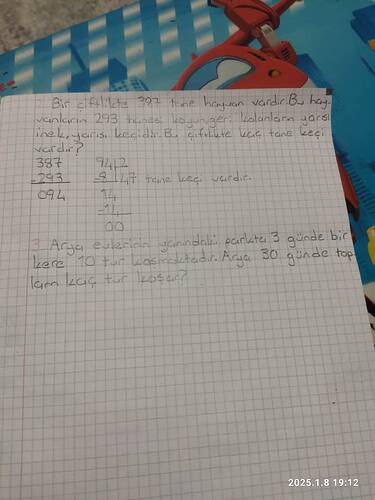 Bir çiftlikte 387 tane hayvan vardır. Bu hay
vanların 293 tanesi koyun, geri kalanların yarısı
inek, yarısı keçidir. Bu çiftlikte kaç tane keçi
vardır?
387 94 2
- 293 - 8 47 tane keçi vardır.
094 14
- 14
00
3. Arya evlerinin yanındaki parkta 3 günde bir
kere 10 tur koşmaktadır. Arya 30 günde top
lam kaç tur koşar?
2025.1.8 19:12